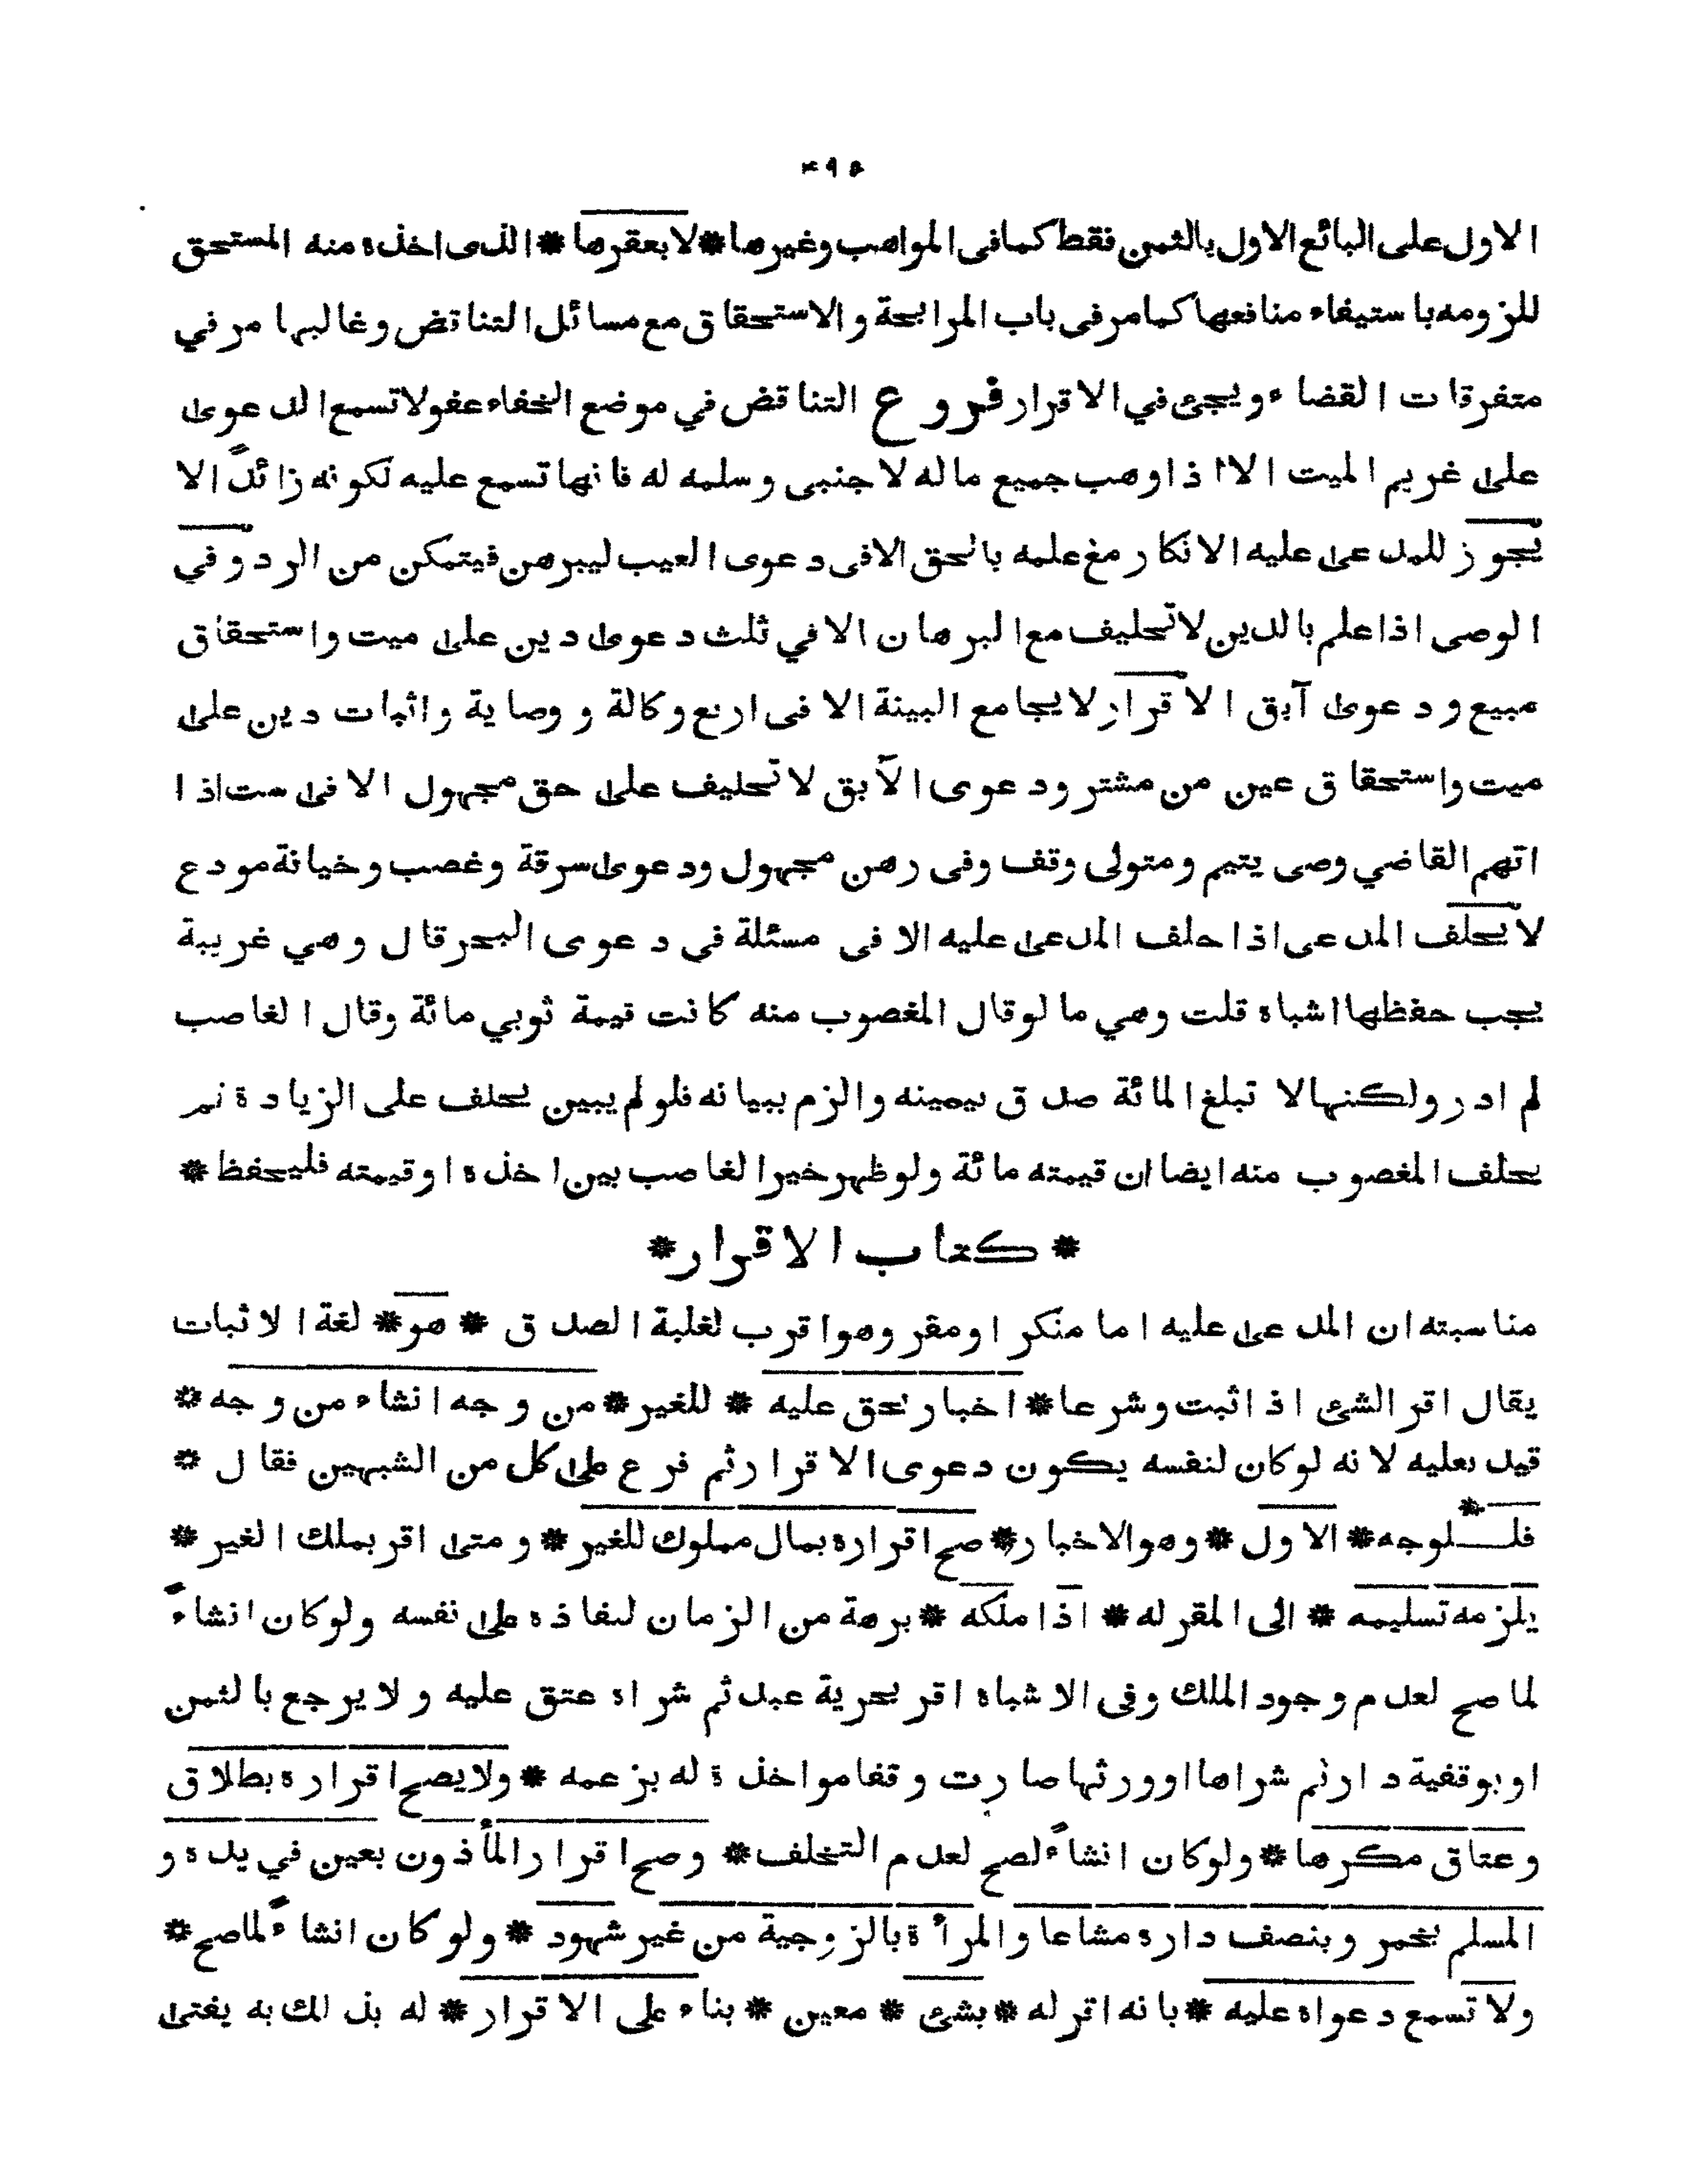 الاول على البائع الاول بالثمن فقط كما فى المواهب وغيرها * لا بعقرها * الذى اخذه منه المستحق
للزومه با ستيفاء منافعها كما مر فى باب المرابحة والاستحقاق مع مسائل التناقض وغالبها مر في
متفرقات القضاء ويجئ في الاقرار فروع التناقض في موضع الخفاء عفو لا تسمع الدعوى
على غريم الميت الا اذا وهب جميع ماله لاجنبى وسلمه له فانها تسمع عليه لكونه زائدًا لا
يجوز للمدعى عليه الانكار مع علمه بالحق الا فى دعوى العيب ليبرهن فيتمكن من الرد وفي
الوصى اذا علم بالدين لا تحليف مع البرهان الا في ثلث دعوى دين على ميت واستحقاق
مبيع ودعوى آبق الاقرار لا يجامع البينة الا فى اربع وكالة ووصاية واثبات دين على
ميت واستحقاق عين من مشتر ودعوى الآبق لا تحليف على حق مجهول الا فى ست اذا
اتهم القاضي وصى يتيم ومتولى وقف وفى رهن مجهول ودعوى سرقة وغصب وخيانة مودع
لا يحلف المدعى اذا حلف المدعى عليه الا فى مسئلة في دعوى البحر قال وهي غريبة
يجب حفظها اشباه قلت وهي ما لو قال المغصوب منه كانت قيمة ثوبي مائة وقال الغاصب
لم ادر ولكنها لا تبلغ المائة صدق بيمينه والزم ببيانه فلو لم يبين يحلف على الزيادة ثم
يحلف المغصوب منه ايضا ان قيمته مائة ولو ظهر خير الغاصب بين اخذه او قيمته فليحفظ *
* كتاب الاقرار *
مناسبته ان المدعى عليه اما منكر او مقر وهو اقرب لغلبة الصدق * هو * لغة الاثبات
يقال اقر الشئ اذا ثبت وشرعا * اخبار بحق عليه * للغير * من وجه انشاء من وجه *
قيد بعليه لانه لو كان لنفسه يكون دعوى الا قرارثم فرع على كل من الشبهين فقال *
فلــلوجه * الاول * وهو الاخبار * صح اقراره بمال مملوك للغير * ومتى اقر بملك الغير *
يلزمه تسليمه * الى المقر له * اذا ملكه * برهة من الزمان لنفاذه على نفسه ولو كان انشاءً
لما صح لعدم وجود الملك وفى الاشباه اقر بحرية عبد ثم شراه عتق عليه ولا يرجع بالثمن
او بوقفية دار ثم شراها او ورثها صارت وقفا مواخذة له بزعمه * ولا يصح اقراره بطلاق
وعتاق مكرها * ولو كان انشاءً لصح لعدم التخلف * وصح اقرار المأذون بعين في يده و
المسلم بخمر وبنصف داره مشاعا والمرأة بالزوجية من غير شهود * ولو كان انشاءً لما صح *
ولا تسمع دعواه عليه * بانه اقر له * بشئ * معين * بناء على الاقرار * له بذلك به يفتى